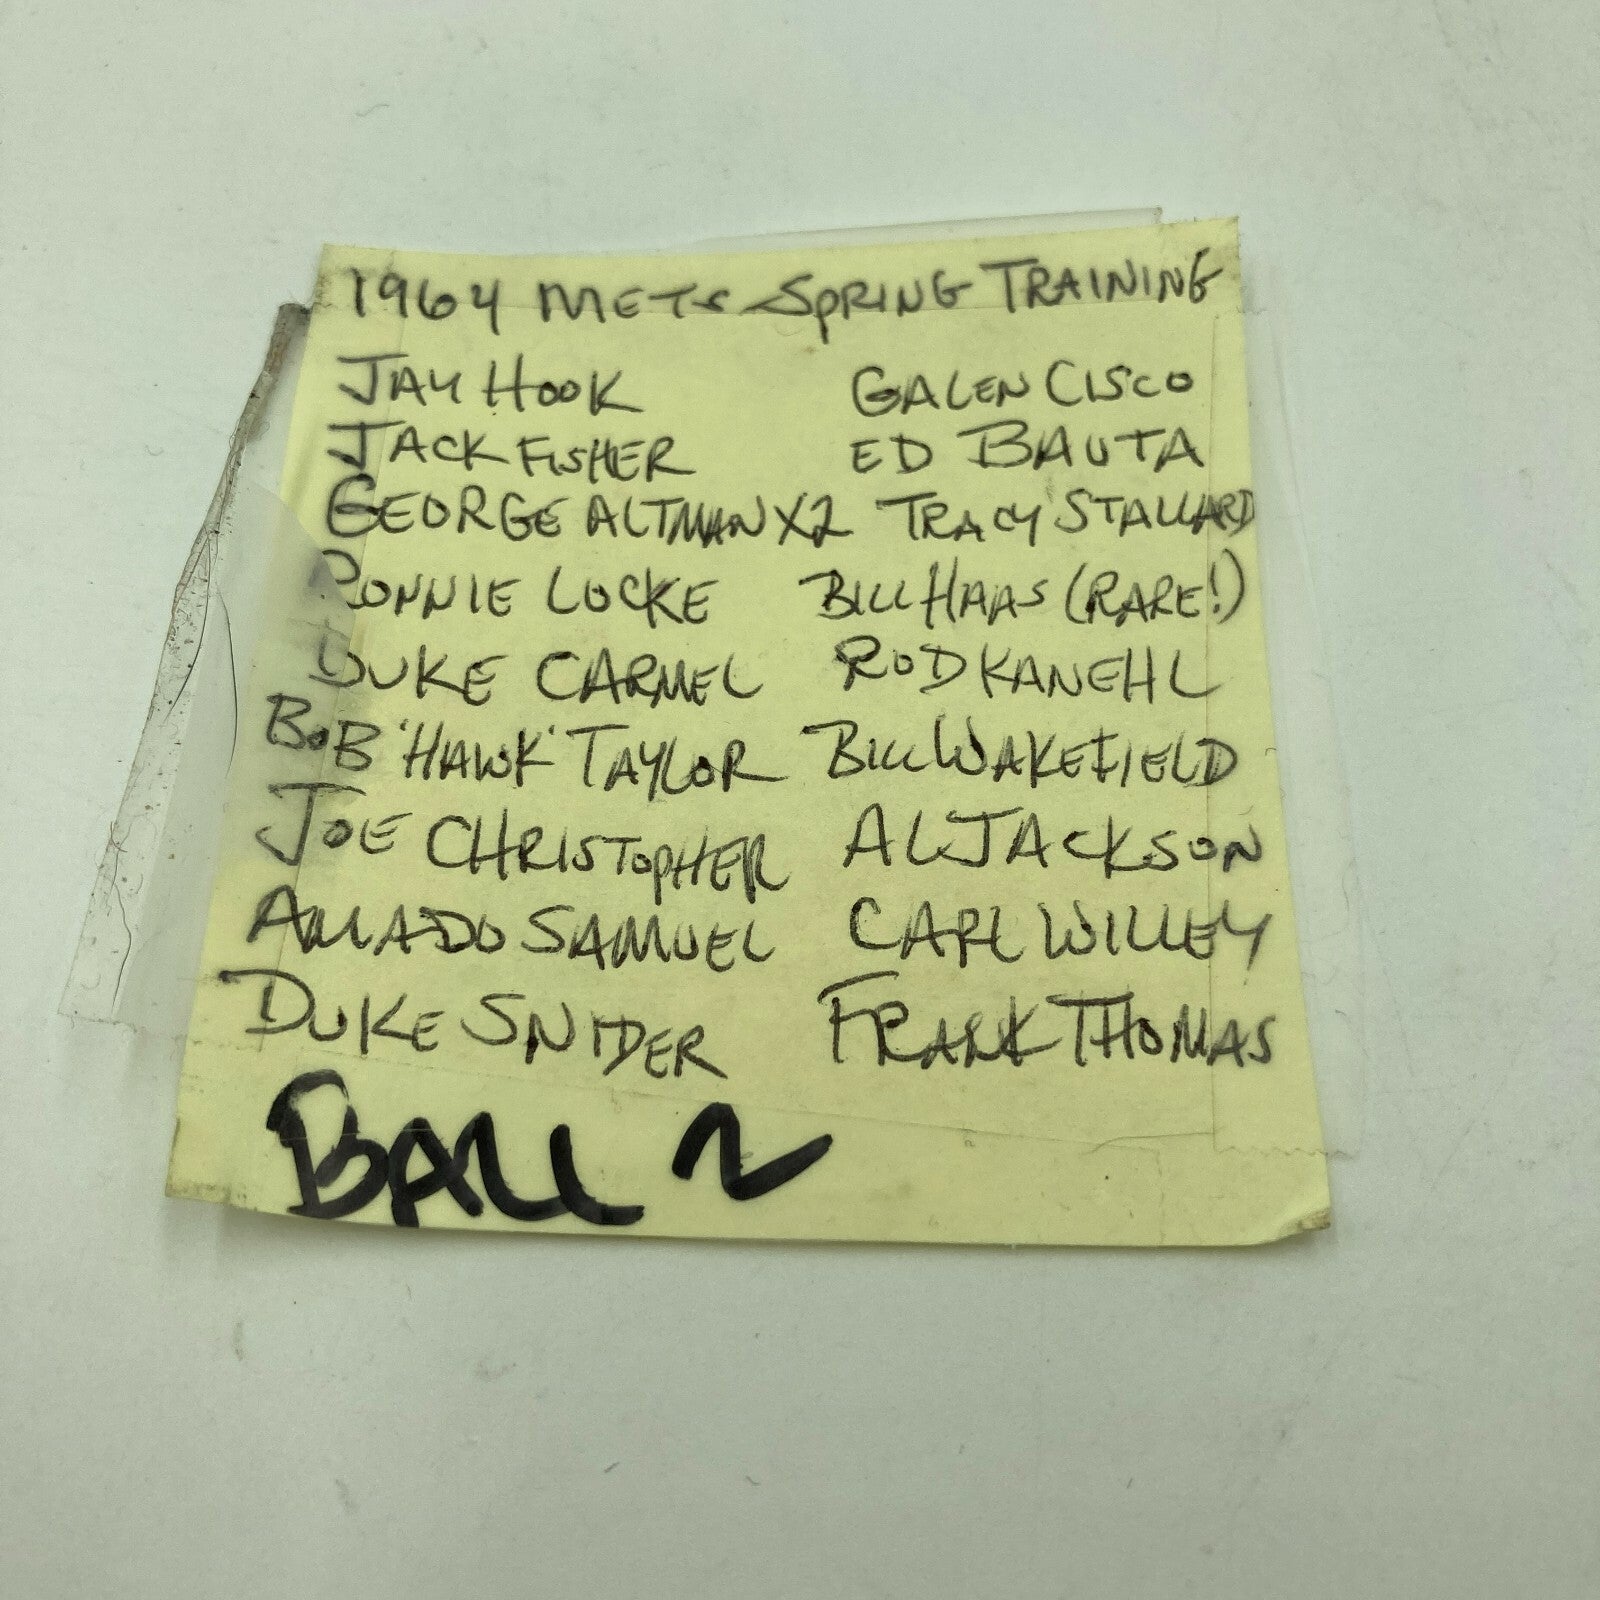 1964 METS SPRING TRAINING
JAY HOOK GALEN CISCO
JACK FISHER ED BAUTA
GEORGE ALTMAN X2 TRACY STALLARD
RONNIE LOCKE BILL HAAS (RARE!)
DUKE CARMEL ROD KANEHL
BOB 'HAWK' TAYLOR BILL WAKEFIELD
JOE CHRISTOPHER AL JACKSON
AMADO SAMUEL CARL WILLEY
DUKE SNIDER FRANK THOMAS
BALL 2